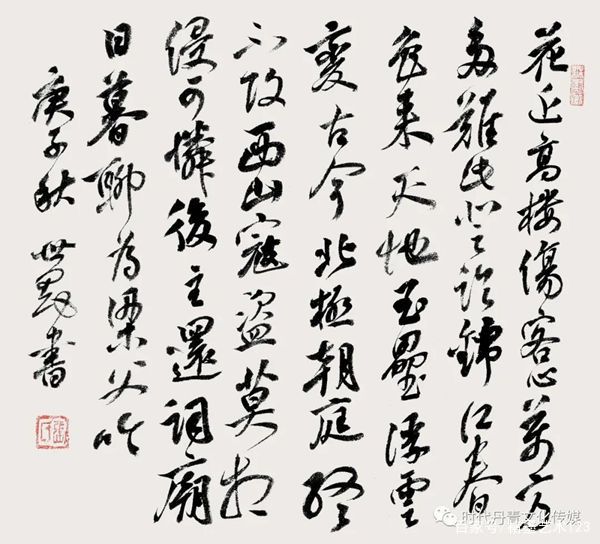 花近高樓傷客心萬方
多難此登臨錦江春
色来天地玉壘浮雲
變古今北極朝庭終
不改西山寇盗莫相
侵可憐後主還祠廟
日暮聊為梁父吟
庚子秋 世 書
时代丹青文化传媒
百家号 艺术123